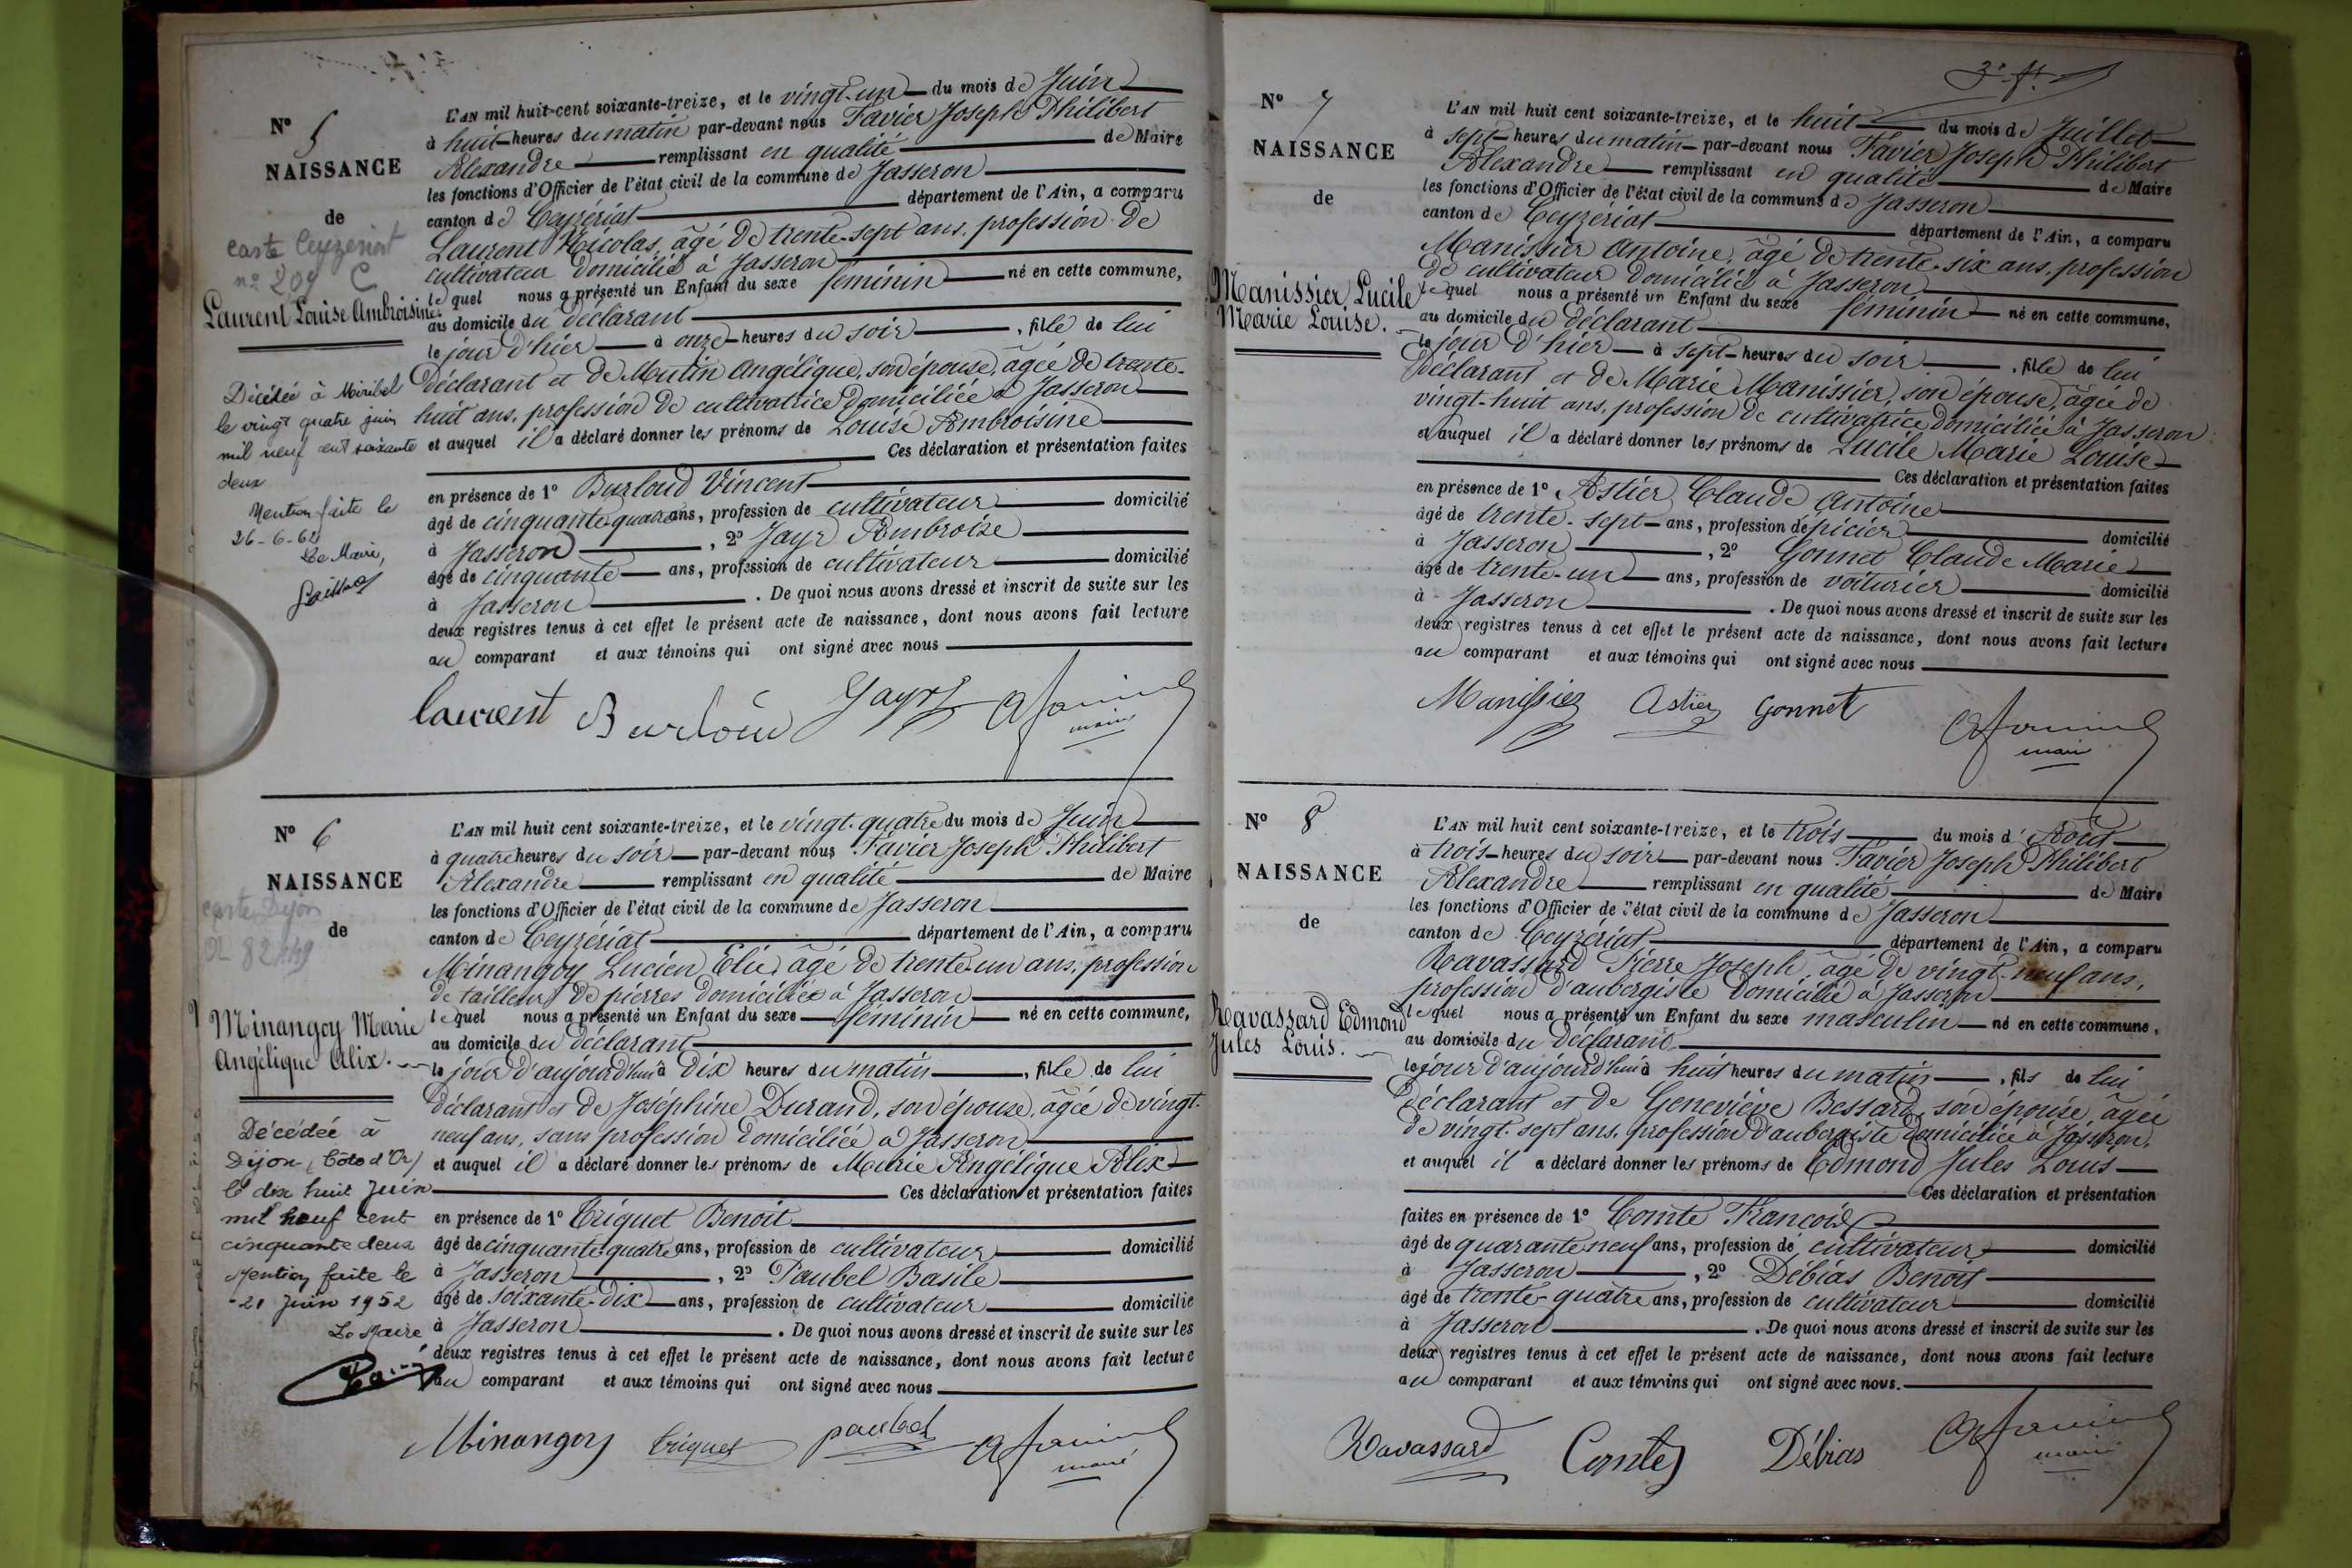 Nº 5
NAISSANCE
de
carte Ceyzeriat
nº 209 C
Laurent Louise Ambroisine
Décédée à Miribel
le vingt quatre juin
mil neuf cent soixante
deux
Mention faite le
26-6-62
Le Maire,
L'AN mil huit-cent soixante-treize, et le vingt-un du mois de Juin
à huit heures du matin par-devant nous Favier Joseph Philibert
Alexandre remplissant en qualité de Maire
les fonctions d'Officier de l'état civil de la commune de Jasseron
canton de Ceyzériat département de l'Ain, a comparu
Laurent Nicolas, âgé de trente-sept ans, profession de
cultivateur domicilié à Jasseron
lequel nous a présenté un Enfant du sexe féminin né en cette commune,
au domicile du déclarant
le jour d'hier à onze heures du soir, fille de lui
déclarant et de Mutin Angélique, son épouse, âgée de trente-
huit ans, profession de cultivatrice domiciliée à Jasseron
et auquel il a déclaré donner les prénoms de Louise Ambroisine
Ces déclaration et présentation faites
en présence de 1º Burloud Vincent
âgé de cinquante-quatre ans, profession de cultivateur domicilié
à Jasseron, 2º Jayr Ambroise
âgé de cinquante ans, profession de cultivateur domicilié
à Jasseron. De quoi nous avons dressé et inscrit de suite sur les
deux registres tenus à cet effet le présent acte de naissance, dont nous avons fait lecture
au comparant et aux témoins qui ont signé avec nous
Laurent Burloud Jayr A Favier
maire
Nº 6
NAISSANCE
carte Dijon
de
Minangoy Marie
Angélique Alix.
Décédée à
Dijon (Côte d'Or)
le dix huit Juin
mil neuf cent
cinquante deux
Mention faite le
21 Juin 1952
Le Maire
L'AN mil huit cent soixante-treize, et le vingt-quatre du mois de Juin
à quatre heures du soir par-devant nous Favier Joseph Philibert
Alexandre remplissant en qualité de Maire
les fonctions d'Officier de l'état civil de la commune de Jasseron
canton de Ceyzériat département de l'Ain, a comparu
Minangoy Lucien Elie, âgé de trente-un ans, profession
de tailleur de pierres domicilié à Jasseron
lequel nous a présenté un Enfant du sexe féminin né en cette commune,
au domicile du déclarant
le jour d'aujourd'hui à dix heures du matin, fille de lui
déclarant et de Joséphine Durand, son épouse, âgée de vingt-
neuf ans, sans profession domiciliée à Jasseron
et auquel il a déclaré donner les prénoms de Marie Angélique Alix
Ces déclaration et présentation faites
en présence de 1º Triquet Benoit
âgé de cinquante-quatre ans, profession de cultivateur domicilié
à Jasseron, 2º Paubel Basile
âgé de soixante-dix ans, profession de cultivateur domicilié
à Jasseron. De quoi nous avons dressé et inscrit de suite sur les
deux registres tenus à cet effet le présent acte de naissance, dont nous avons fait lecture
au comparant et aux témoins qui ont signé avec nous
Minangoy Triquet paubel A Favier
maire
3e ft
Nº 7
NAISSANCE
de
Manissier Lucile
Marie Louise.
L'AN mil huit cent soixante-treize, et le huit du mois de Juillet
à sept heures du matin par-devant nous Favier Joseph Philibert
Alexandre remplissant en qualité de Maire
les fonctions d'Officier de l'état civil de la commune de Jasseron
canton de Ceyzériat département de l'Ain, a comparu
Manissier Antoine, âgé de trente-six ans, profession
de cultivateur domicilié à Jasseron
lequel nous a présenté un Enfant du sexe féminin né en cette commune,
au domicile du déclarant
le jour d'hier à sept heures du soir, fille de lui
déclarant et de Marie Manissier, son épouse, âgée de
vingt-huit ans, profession de cultivatrice domiciliée à Jasseron
et auquel il a déclaré donner les prénoms de Lucile Marie Louise
Ces déclaration et présentation faites
en présence de 1º Astier Claude Antoine
âgé de trente-sept ans, profession d'épicier domicilié
à Jasseron, 2º Gonnet Claude Marie
âgé de trente-un ans, profession de voiturier domicilié
à Jasseron. De quoi nous avons dressé et inscrit de suite sur les
deux registres tenus à cet effet le présent acte de naissance, dont nous avons fait lecture
au comparant et aux témoins qui ont signé avec nous
Manissier Astier Gonnet A Favier
maire
Nº 8
NAISSANCE
de
Ravassard Edmond
Jules Louis.
L'AN mil huit cent soixante-treize, et le trois du mois d'Août
à trois heures du soir par-devant nous Favier Joseph Philibert
Alexandre remplissant en qualité de Maire
les fonctions d'Officier de l'état civil de la commune de Jasseron
canton de Ceyzériat département de l'Ain, a comparu
Ravassard Pierre Joseph, âgé de vingt-neuf ans,
profession d'aubergiste domicilié à Jasseron
lequel nous a présenté un Enfant du sexe masculin né en cette commune,
au domicile du déclarant
le jour d'aujourd'hui à huit heures du matin, fils de lui
déclarant et de Geneviève Bessard, son épouse, âgée
de vingt-sept ans, profession d'aubergiste domiciliée à Jasseron,
et auquel il a déclaré donner les prénoms de Edmond Jules Louis
Ces déclaration et présentation
faites en présence de 1º Comte François
âgé de quarante neuf ans, profession de cultivateur domicilié
à Jasseron, 2º Débias Benoit
âgé de trente-quatre ans, profession de cultivateur domicilié
à Jasseron. De quoi nous avons dressé et inscrit de suite sur les
deux registres tenus à cet effet le présent acte de naissance, dont nous avons fait lecture
au comparant et aux témoins qui ont signé avec nous.
Ravassard Comte Débias A Favier
maire